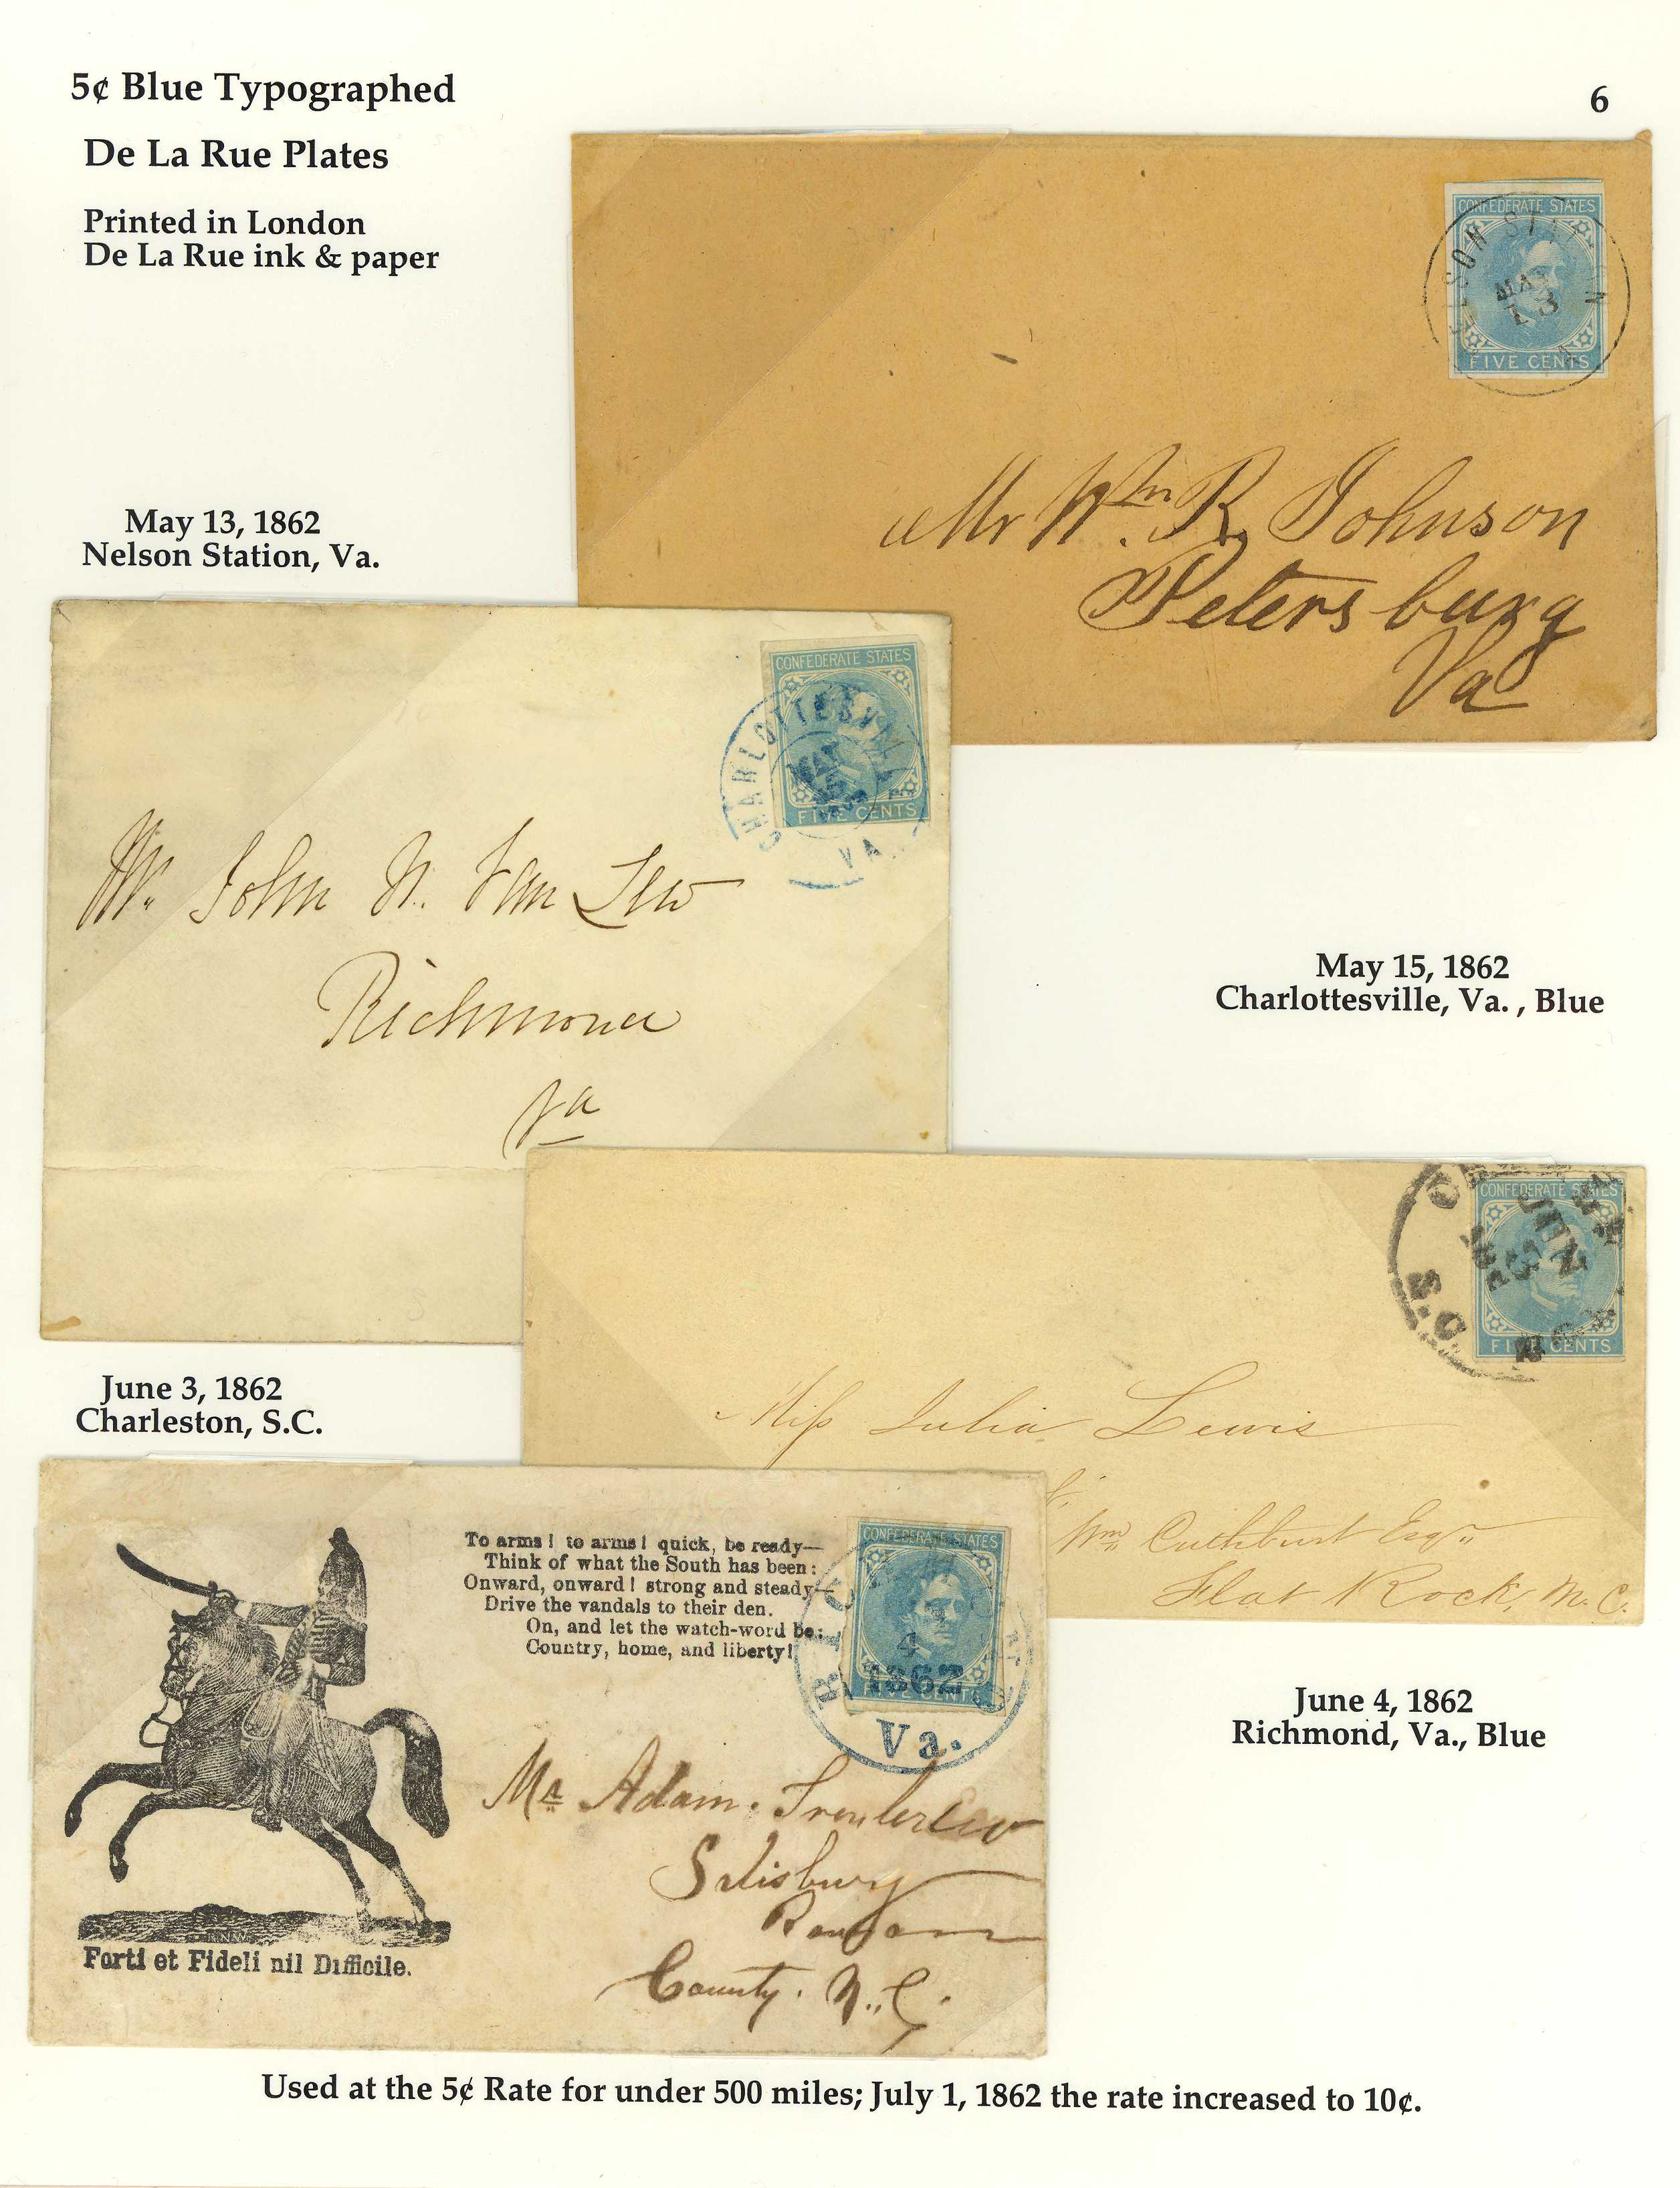 5¢ Blue Typographed
6
De La Rue Plates
Printed in London
De La Rue ink & paper
CONFEDERATE STATES
NELSON STATION
MAY
13
FIVE CENTS
Mr Wm. R. Johnson
Petersburg
Va
May 13, 1862
Nelson Station, Va.
CONFEDERATE STATES
CHARLOTTESVILLE
MAY
15
1862
FIVE CENTS
VA.
Mr. John N. Van Lew
Richmond
Va
May 15, 1862
Charlottesville, Va. , Blue
CONFEDERATE STATES
JUN
3
S.C.
1862
FIVE CENTS
Miss Julia Lewis
Wm Cuthburt Esqr
Flat Rock, N. C.
June 3, 1862
Charleston, S.C.
To arms! to arms! quick, be ready—
Think of what the South has been:
Onward, onward! strong and steady—
Drive the vandals to their den.
On, and let the watch-word be:
Country, home, and liberty!
CONFEDERATE STATES
RICHMOND
4
1862
FIVE CENTS
Va.
Mr Adam
Salisbury
Rowan
County. N.C.
Forti et Fideli nil Difficile.
June 4, 1862
Richmond, Va., Blue
Used at the 5¢ Rate for under 500 miles; July 1, 1862 the rate increased to 10¢.